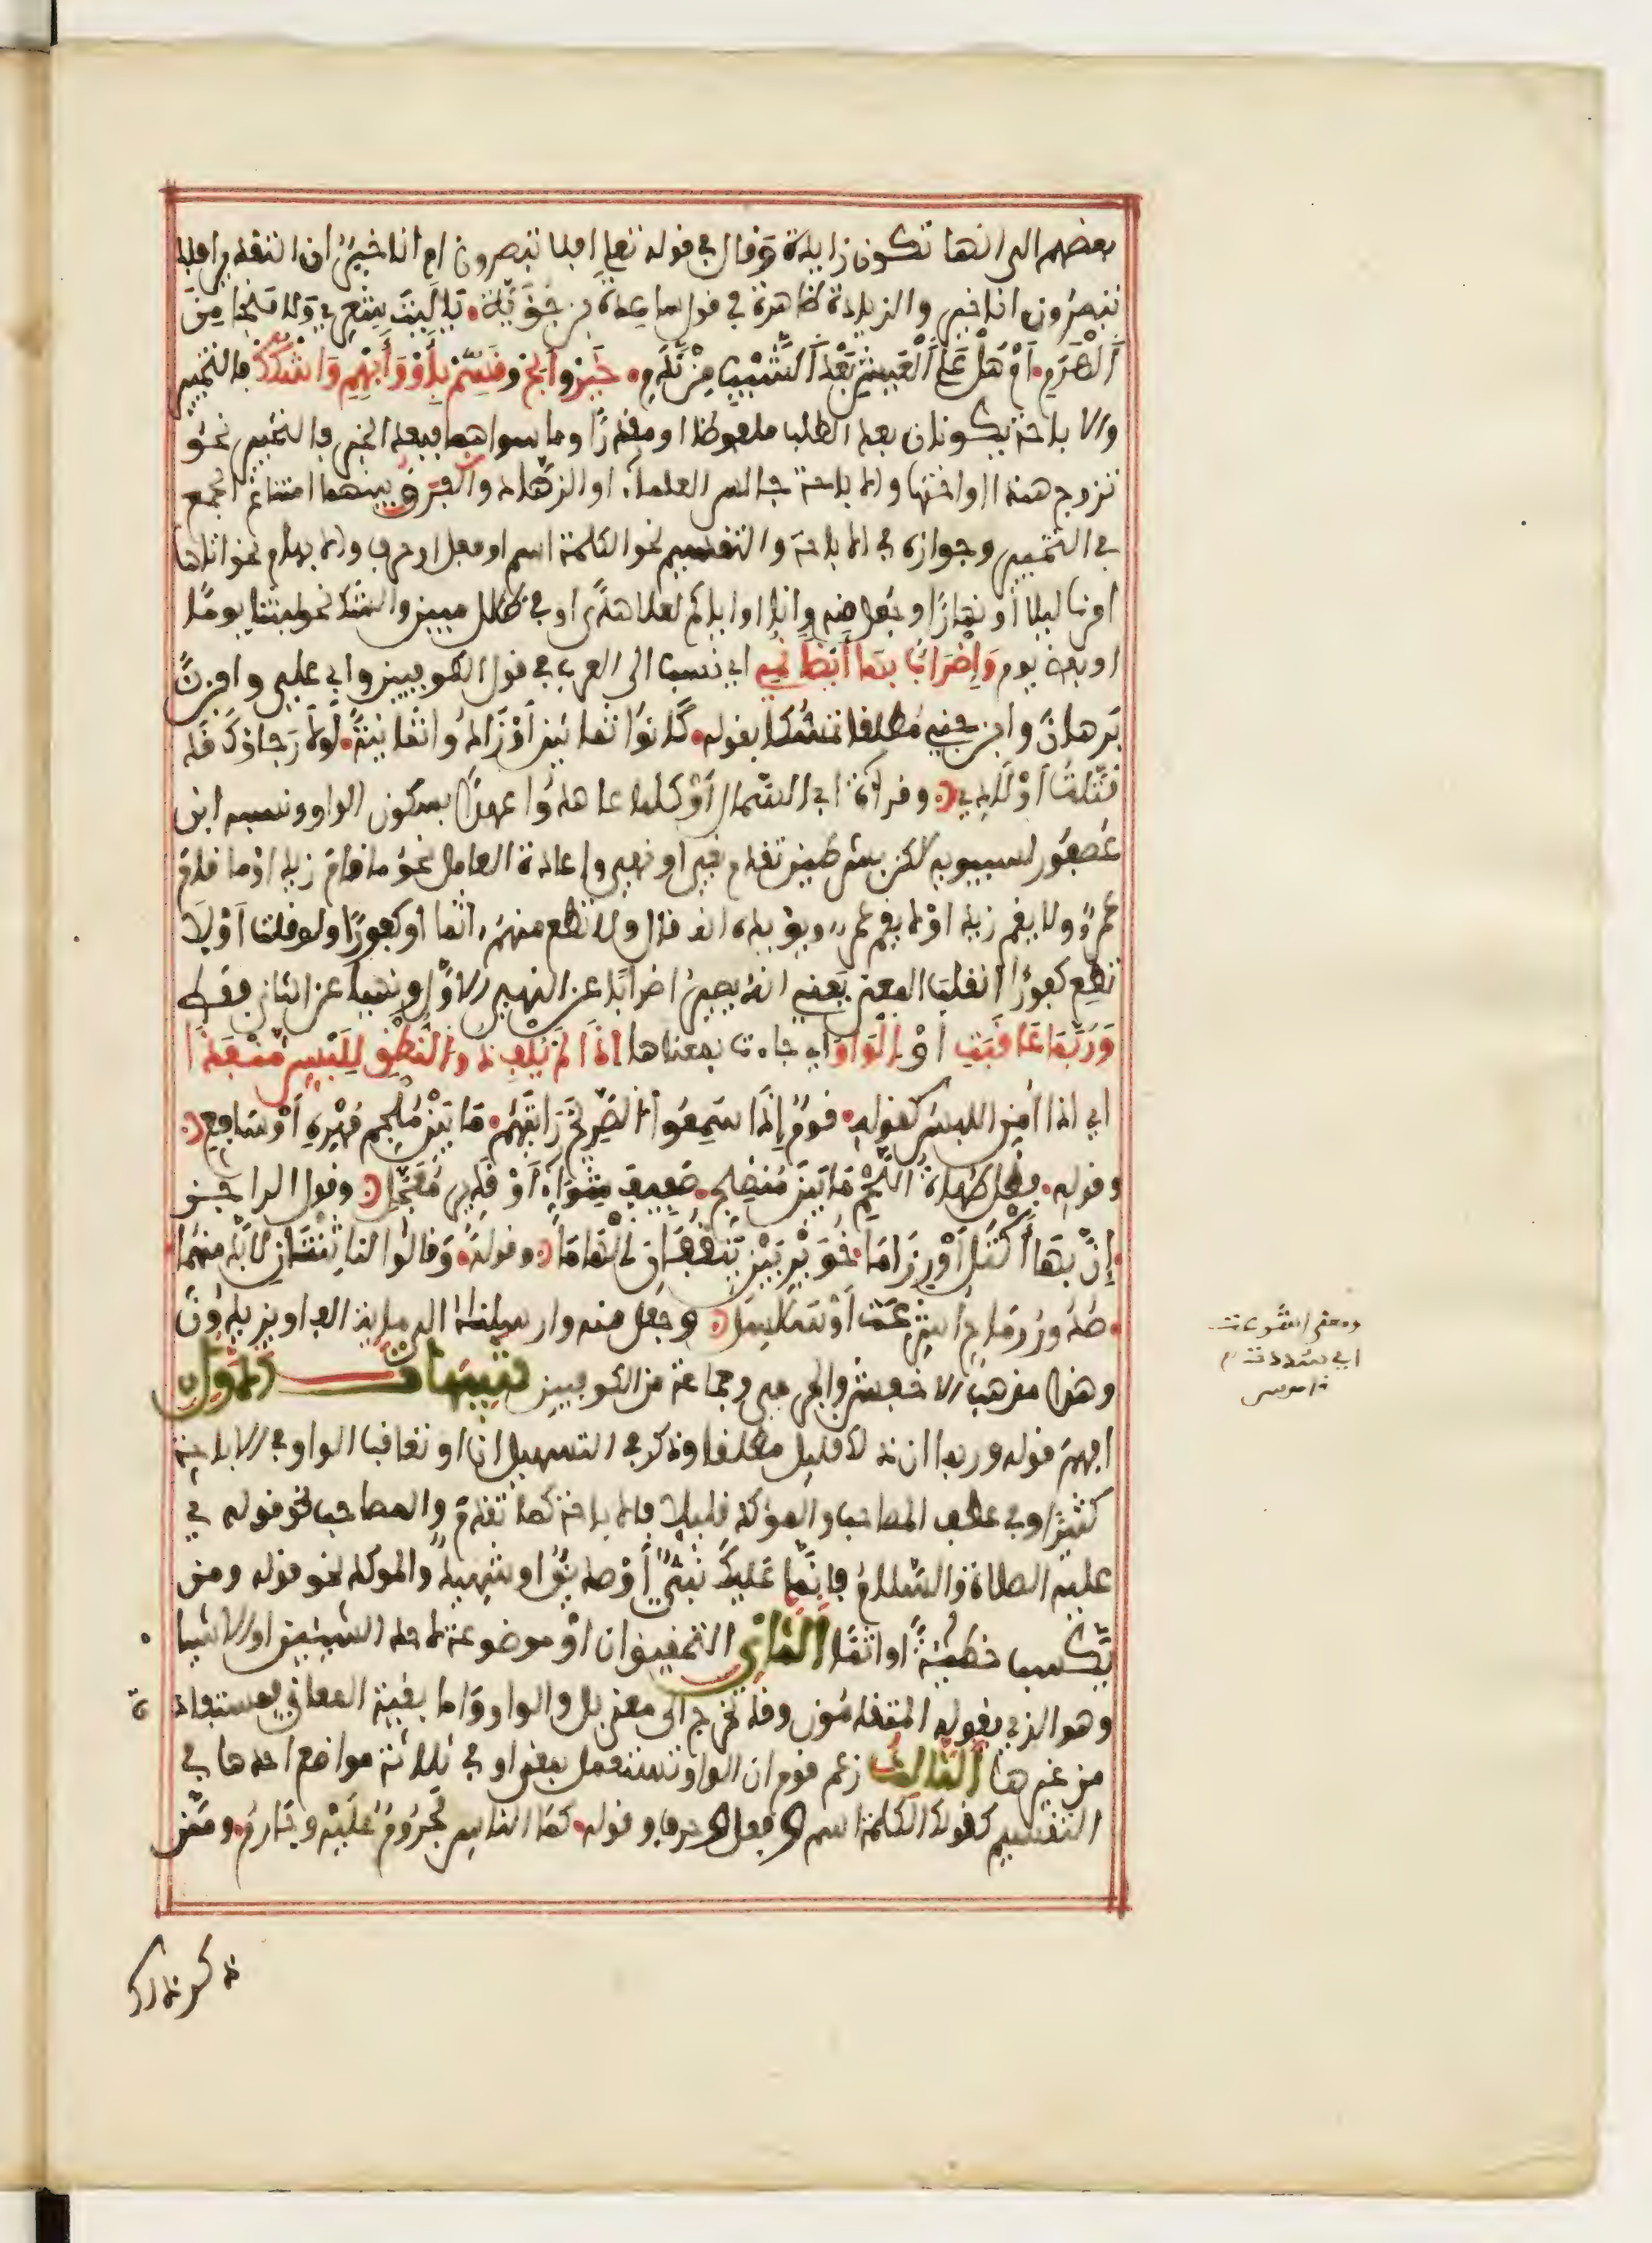 بعضهم الى انها تكون زايدة وقال في قوله تعلى افلا تبصرون ام انا خير ان التقدير افلا
تبصرون انا خير والزيادة ظاهرة في قول ساعدة بن جؤية يا ليت شعري ولا منجا من
الهرم أم هل على العيش بعد الشيب من ندم خير وابح وقسم باو وأبهم واشكك فالتخيير
والاباحة يكونان بعد الطلب ملفوظا او مقدرا وما سواهما فبعد الخبر فالتخيير نحو
تزوج هندا او اختها والاباحة جالس العلماء او الزهاد والفرق بينهما امتناع الجمع
في التخيير وجوازه في الاباحة والتقسيم نحو الكلمة اسم او فعل او حرف والابهام نحو اتاها
امرنا ليلا أو نهارا وجعل منه وانا او اياكم لعلى هدى او في ظلل مبين والشك نحو لبثنا يوما
او بعض يوم وإضراب بها أيضا نمي اي نسب الى العرب في قول الكوفيين وابي علي وابن
برهان وابن جني مطلقا تمسكا بقوله كانوا ثمانين أو زادوا ثمانية لولا رجاؤك قد
قتلت أولادي وقرأة ابي السمال أو كلما عاهدوا عهدا بسكون الواو ونسبه ابن
عصفور لسيبويه لكن بشرطين تقدم نفي او نهي واعادة العامل نحو ما قام زيد او ما قام
عمرو ولا يقم زيد او لا يقم عمرو ويؤيده انه قال ولا تطع منهم اثما أو كفورا ولو قلت أو لا
تطع كفورا انقلب المعنى يعني انه يصير اضرابا عن النهي الاول ونهيا عن الثاني فقط
وربما عاقبت أو الواو اي جاءت بمعناها إذا لم يلف ذو النطق للبس منفذا
اي اذا امن اللبس كقوله قوم إذا سمعوا الصريخ رأيتهم ما بين ملجم مهره أو سافع
وقوله فظل طهاة اللحم ما بين منضج صفيف شواء أو قدير معجل وقول الراجز
إن بها أكتل أو رزاما خويربين ينقفان الهاما وقوله وقالوا لنا ثنتان لا بد منهما
صدور رماح أشرعت أو سلاسل وجعل منه وارسلناه الى ماية الف او يزيدون
وهذا مذهب الاخفش والجرمي وجماعة من الكوفيين تنبيهات الاول
افهم قوله وربما ان ذلك قليل مطلقا وذكر في التسهيل ان او تعاقب الواو في الاباحة
كثيرا وفي عطف المصاحب والموكد قليلا فالاباحة كما تقدم والمصاحب نحو قوله في
عليه الصلاة والسلام فإنما عليك نبي أو صديق او شهيد والموكد نحو قوله ومن
يكسب خطيئة او اثما الثاني التحقيق ان او موضوعة لاحد الشيئين او الاشيا
وهو الذي يقوله المتقدمون وقد تخرج الى معنى بل والواو واما بقية المعاني فمستفادة
من غيرها الثالث زعم قوم ان الواو تستعمل بمعنى او في ثلاثة مواضع احدها في
التقسيم كقولك الكلمة اسم وفعل وحرف وقوله كما الناس مجروم عليه وجارم وممن
ذكر ذلك
ومعنى اشرعت
اي سددت
قاموس